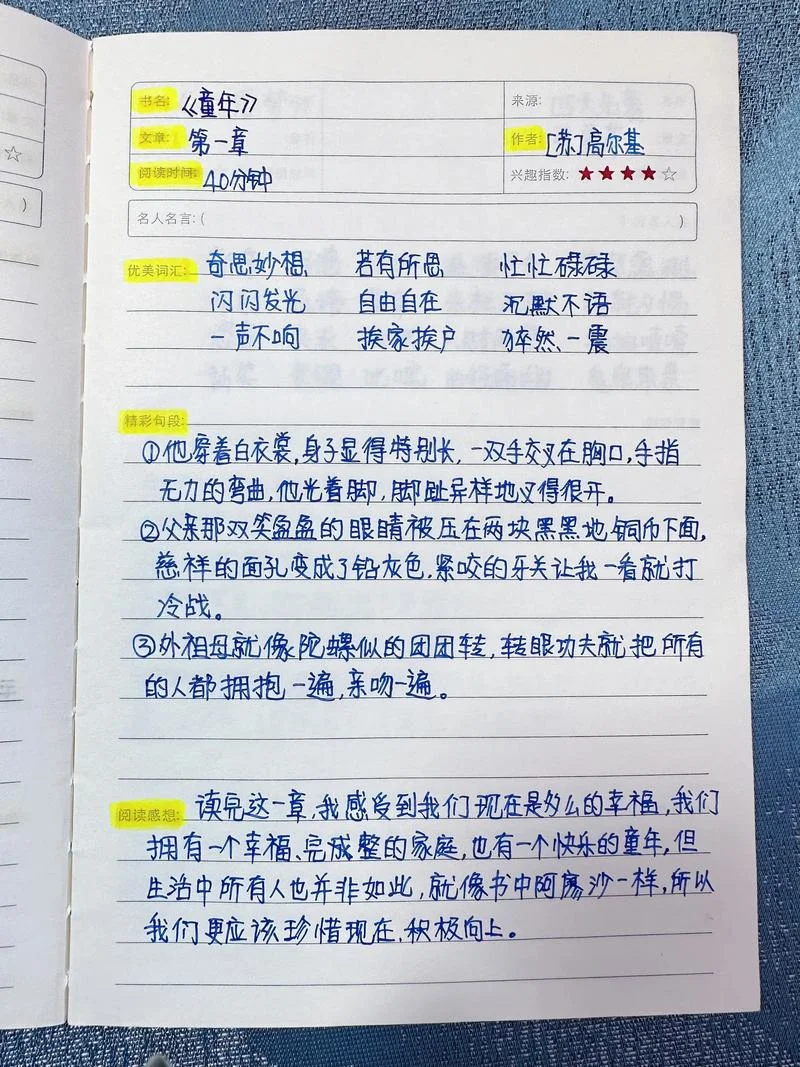 书名: 《童年》 来源:
文章: 第一章 作者: [苏]高尔基
阅读时间: 40分钟 兴趣指数: ★★★★☆
名人名言:( )
优美词汇: 奇思妙想 若有所思 忙忙碌碌
闪闪发光 自由自在 沉默不语
一声不响 挨家挨户 猝然一震
精彩句段:
①他穿着白衣裳,身子显得特别长,一双手交叉在胸口,手指
无力的弯曲,他光着脚,脚趾异样地叉得很开。
②父亲那双笑盈盈的眼睛被压在两块黑黑地铜币下面,
慈祥的面孔变成了铅灰色,紧咬的牙关让我一看就打
冷战。
③外祖母就像陀螺似的团团转,转眼功夫就把所有
的人都拥抱一遍,亲吻一遍。
阅读感想: 读完这一章,我感受到我们现在是多么的幸福,我们
拥有一个幸福、完成整的家庭,也有一个快乐的童年,但
生活中所有人也并非如此,就像书中阿廖沙一样,所以
我们更应该珍惜现在,积极向上。